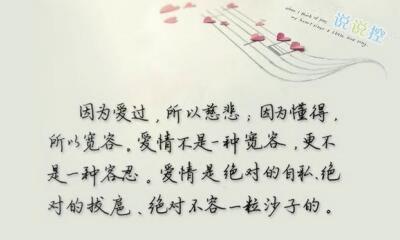 when I think of you,
my heart sings a little love song.
说说控
因为爱过，所以慈悲；因为懂得，
所以宽容。爱情不是一种宽容，更不
是一种容忍。爱情是绝对的自私、绝
对的拔扈、绝对不容一粒沙子的。